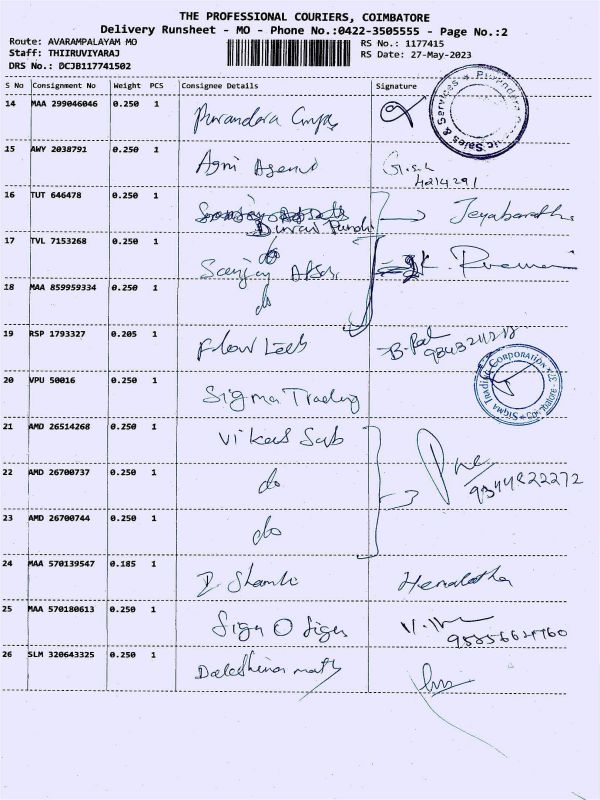 THE PROFESSIONAL COURIERS, COIMBATORE
Delivery Runsheet - MO - Phone No.:0422-3505555 - Page No.:2
Route: AVARAMPALAYAM MO RS No.: 1177415
Staff: THIIRUVIYARAJ RS Date: 27-May-2023
DRS No.: DCJB117741502
S No Consignment No Weight PCS Consignee Details Signature
14 MAA 299046046 0.250 1 Purandara
15 AWY 2038791 0.250 1 Agni
4214291
16 TUT 646478 0.250 1
17 TVL 7153268 0.250 1 do
Sanjay
18 MAA 859959334 0.250 1 do
19 RSP 1793327 0.205 1 Flow
20 VPU 50016 0.250 1 Sigma Trading
Sigma Trading Corporation
Coimbatore
21 AMD 26514268 0.250 1 Vikas Sab
22 AMD 26700737 0.250 1 do
23 AMD 26700744 0.250 1 do
24 MAA 570139547 0.185 1 Hemalatha
25 MAA 570180613 0.250 1 Sign O Sign
26 SLM 320643325 0.250 1